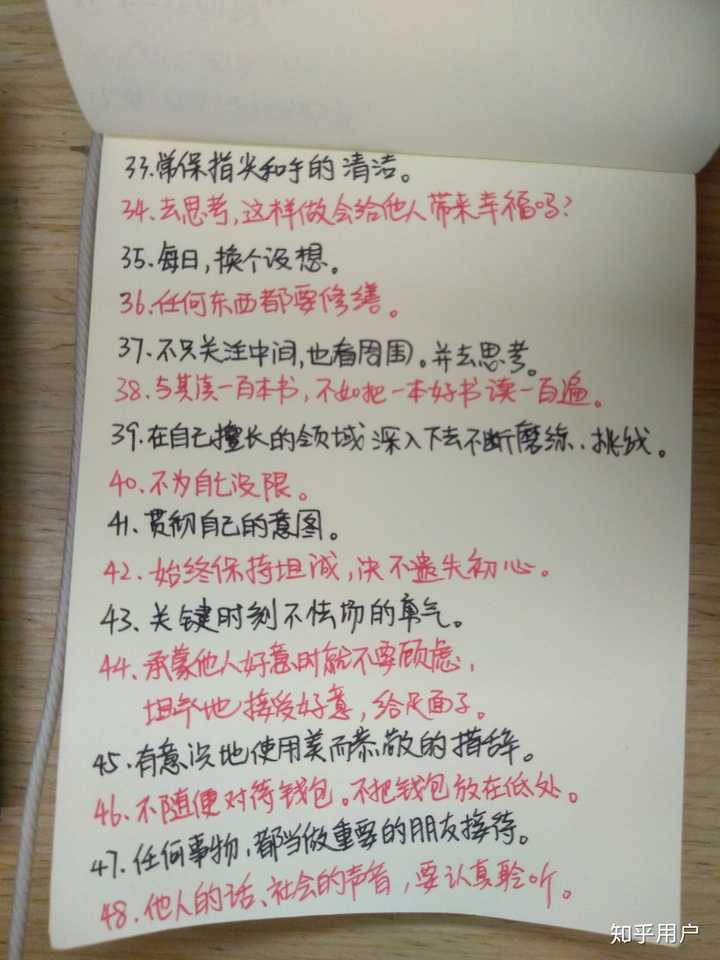 33.常保指尖和手的清洁。
34、去思考,这样做会给他人带来幸福吗?
35、每日,换个设想。
36、任何东西都要修缮。
37、不只关注中间,也看周围。并去思考。
38、与其读一百本书,不如把一本好书读一百遍。
39、在自己擅长的领域深入下去不断磨练、挑战。
40、不为自己设限。
41、贯彻自己的意图。
42、始终保持坦诚,决不遗失初心。
43、关键时刻不怯场的勇气。
44、承蒙他人好意时就不要顾虑,
坦率地接受好意,给足面子。
45、有意识地使用美而恭敬的措辞。
46、不随便对待钱包。不把钱包放在低处。
47、任何事物,都当做重要的朋友接待。
48、他人的话、社会的声音,要认真聆听。
知乎用户